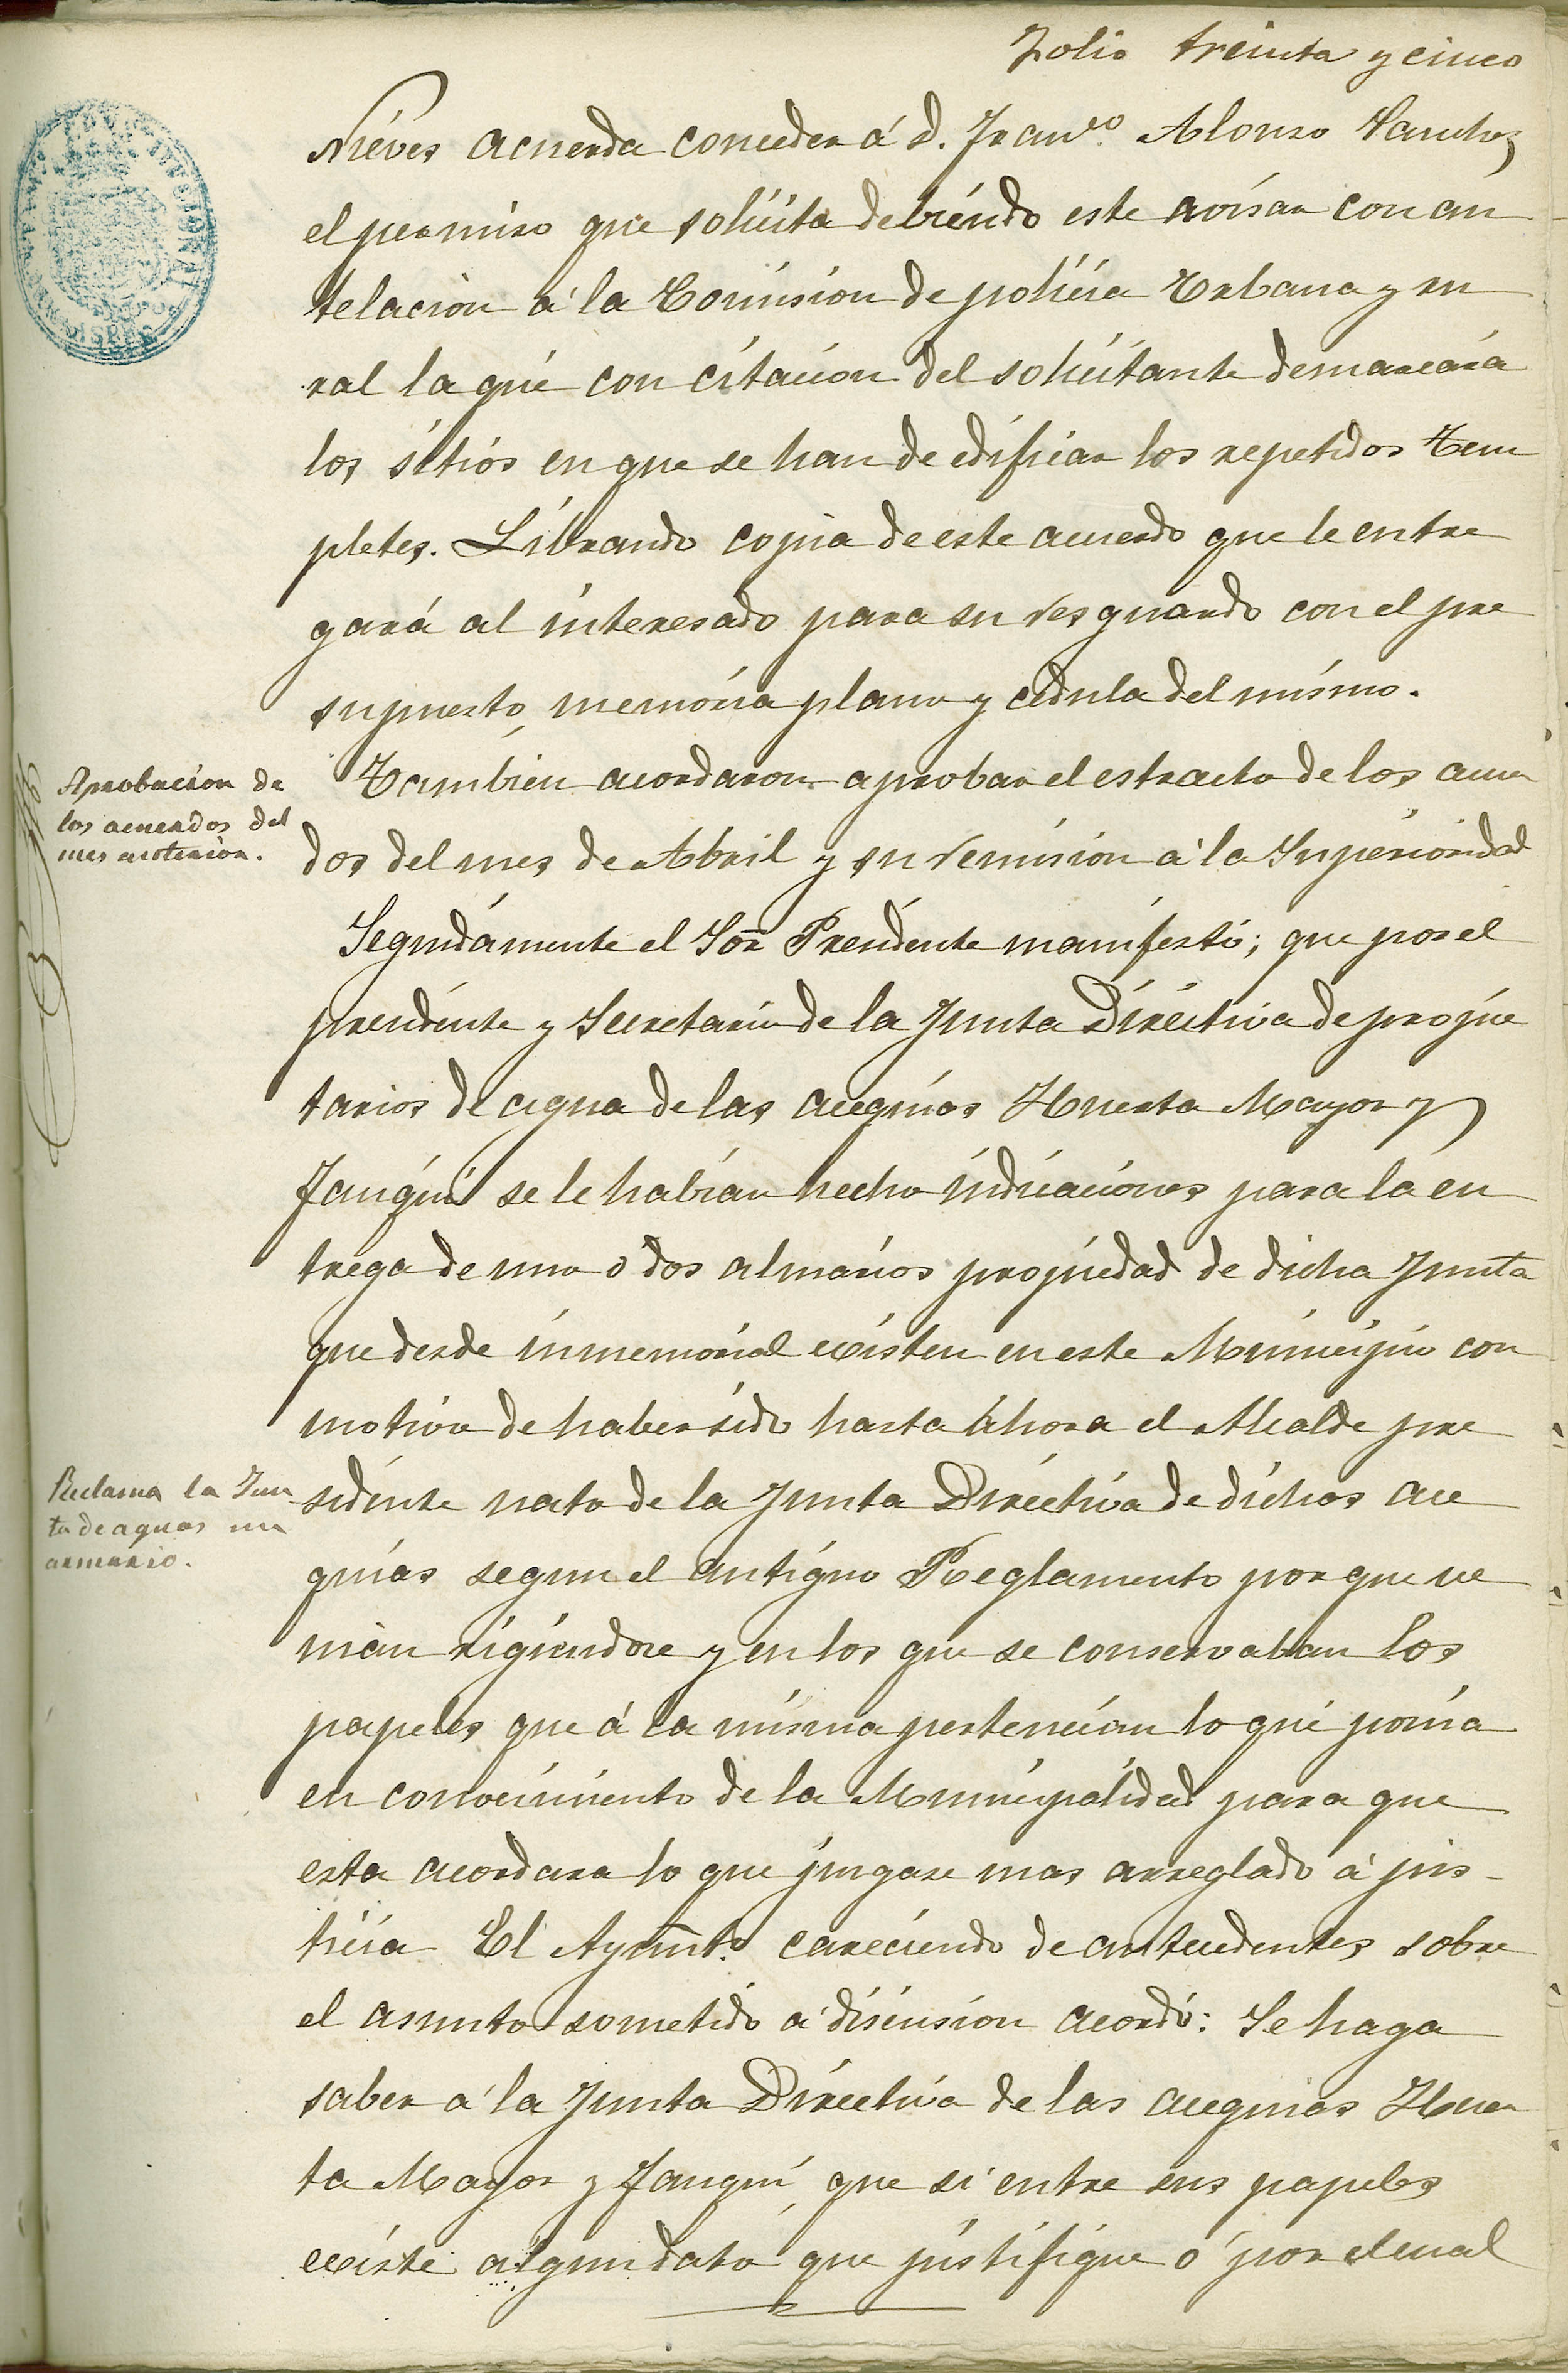 Folio treinta y cinco
Nieves acuerda conceder á d. Franco. Alonso Sanchez
el permiso que solicita debiendo este avisar con an
telacion a la Comision de policia Urbana y ru
ral la que con citacion del solicitante demarcará
los sitios en que se han de edificar los repetidos Tem
pletes. Librando copia de este acuerdo que le entre
gará al interesado para su resguardo con el pre
supuesto, memoria plano y cedula del mismo.
Aprobacion de
los acuerdos del
mes anterior.
Tambien acordaron aprobar el estracto de los acuer
dos del mes de Abril y su remision a la Superioridad
Seguidamente el Sor Presidente manifestó; que por el
presidente y Secretario de la Junta Directiva de propie
tarios de agua de las acequias Huerta Mayor y
Fauquí se le habian hecho indicaciones para la en
trega de uno o dos almarios propiedad de dicha Junta
que desde inmemorial existen en este Municipio con
motivo de haber sido hasta ahora el Alcalde pre
Reclama la Jun
ta de aguas un
armario.
sidente nato de la Junta Directiva de dichas ace
quias segun el antiguo Reglamento porque ve
nian rigiendose y en los que se conservaban los
papeles que á la misma pertenecian lo que ponia
en conocimiento de la Municipalidad para que
esta acordara lo que juzgase mas arreglado á jus-
ticia El Aymto. careciendo de antecedentes sobre
el asunto sometido a discusion acordó: Se haga
saber a la Junta Directiva de las acequias Huer
ta Mayor y Fauquí, que si entre sus papeles
existe algun dato que justifique ó por el cual